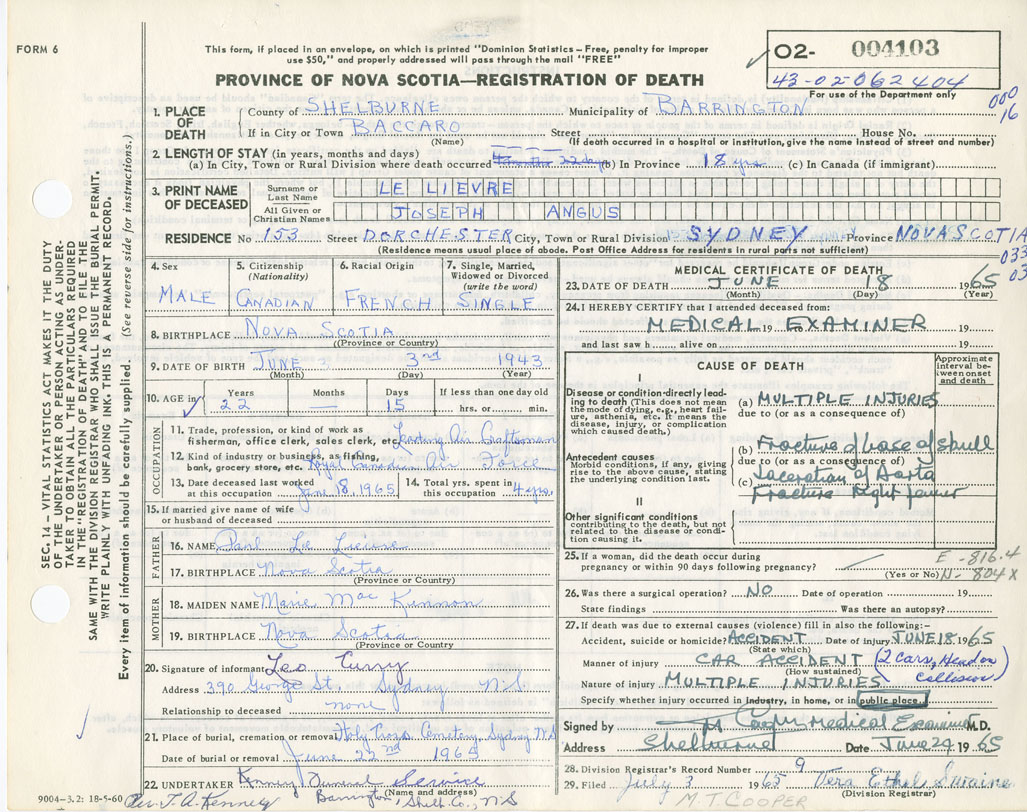 FORM 6
This form, if placed in an envelope, on which is printed "Dominion Statistics – Free, penalty for improper
use $50," and properly addressed will pass through the mail "FREE"
PROVINCE OF NOVA SCOTIA—REGISTRATION OF DEATH
02- 004103
43-02-062404
For use of the Department only
000
16
1. PLACE OF DEATH
County of SHELBURNE Municipality of BARRINGTON
If in City or Town BACCARO Street House No.
(Name) (If death occurred in a hospital or institution, give the name instead of street and number)
2. LENGTH OF STAY (in years, months and days)
(a) In City, Town or Rural Division where death occurred 22 days (b) In Province 18 yrs (c) In Canada (if immigrant)
3. PRINT NAME OF DECEASED
Surname or Last Name LE LIEVRE
All Given or Christian Names JOSEPH ANGUS
RESIDENCE No 153 Street DORCHESTER City, Town or Rural Division SYDNEY Province NOVA SCOTIA
(Residence means usual place of abode. Post Office Address for residents in rural parts not sufficient)
033
03
4. Sex MALE
5. Citizenship (Nationality) CANADIAN
6. Racial Origin FRENCH
7. Single, Married, Widowed or Divorced (write the word) SINGLE
8. BIRTHPLACE NOVA SCOTIA
(Province or Country)
9. DATE OF BIRTH JUNE 3 3rd 1943
(Month) (Day) (Year)
10. AGE in Years 22 Months — Days 15 If less than one day old hrs. or min.
OCCUPATION
11. Trade, profession, or kind of work as
fisherman, office clerk, sales clerk, etc. Leading Air Craftsman
12. Kind of industry or business, as fishing,
bank, grocery store, etc. Royal Canadian Air Force
13. Date deceased last worked
at this occupation June 18, 1965
14. Total yrs. spent in
this occupation 4 yrs.
15. If married give name of wife
or husband of deceased
FATHER
16. NAME Paul Le Lievre
17. BIRTHPLACE Nova Scotia
(Province or Country)
MOTHER
18. MAIDEN NAME Marie Mac Kinnon
19. BIRTHPLACE Nova Scotia
(Province or Country)
20. Signature of informant Leo Curry
Address 390 George St., Sydney N.S
Relationship to deceased none
21. Place of burial, cremation or removal Holy Cross Cemetery, Sydney N.S
Date of burial or removal June 22nd 1965
22. UNDERTAKER Kenney Funeral Service
(Name and address)
Barrington, Shelb. Co., N.S
9004–3.2: 18-5-60
Per. J. A. Kenney
MEDICAL CERTIFICATE OF DEATH
23. DATE OF DEATH JUNE 18 1965
(Month) (Day) (Year)
24. I HEREBY CERTIFY that I attended deceased from:
MEDICAL 19 EXAMINER 19
and last saw h alive on 19
CAUSE OF DEATH
Approximate interval between onset and death
I
Disease or condition directly leading to death (This does not mean the mode of dying, e.g., heart failure, asthenia, etc. It means the disease, injury, or complication which caused death.)
(a) MULTIPLE INJURIES
due to (or as a consequence of)
Antecedent causes
Morbid conditions, if any, giving rise to the above cause, stating the underlying condition last.
(b) Fracture of base of skull
due to (or as a consequence of)
(c) Laceration of Aorta
Fracture Right femur
II
Other significant conditions
contributing to the death, but not related to the disease or condition causing it.
25. If a woman, did the death occur during
pregnancy or within 90 days following pregnancy?
(Yes or No)
E -816.4
N- 804X
26. Was there a surgical operation? NO Date of operation 19
State findings Was there an autopsy?
27. If death was due to external causes (violence) fill in also the following:–
Accident, suicide or homicide? ACCIDENT Date of injury JUNE 18 1965
(State which)
Manner of injury CAR ACCIDENT (2 Cars, Head on Collision)
(How sustained)
Nature of injury MULTIPLE INJURIES
Specify whether injury occurred in industry, in home, or in public place.
Signed by Medical Examiner M.D.
Address Shelburne Date June 29 1965
28. Division Registrar's Record Number 9
29. Filed July 3 1965 Vera Ethel Swaine
(Division Registrar)
M.T. COOPER
SEC. 14 – VITAL STATISTICS ACT MAKES IT THE DUTY
OF THE UNDERTAKER OR PERSON ACTING AS UNDERTAKER TO OBTAIN ALL THE PARTICULARS REQUIRED
IN THE "REGISTRATION OF DEATH" AND TO FILE THE
SAME WITH THE DIVISION REGISTRAR WHO SHALL ISSUE THE BURIAL PERMIT.
WRITE PLAINLY WITH UNFADING INK. THIS IS A PERMANENT RECORD.
Every item of information should be carefully supplied. (See reverse side for instructions.)